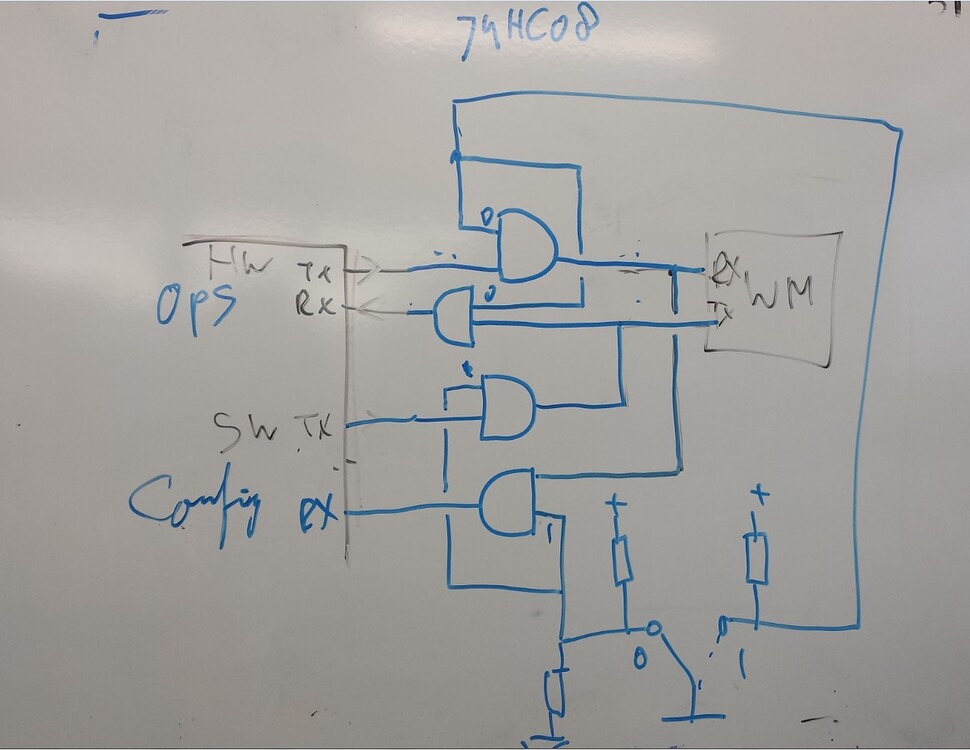 74HC08
0
HW TX
RX WM
Ops RX
0
TX
1
SW TX
Config RX
1
+ +
0 1